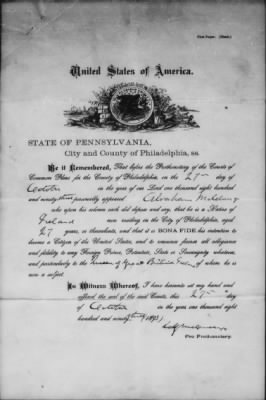 United States of America.
STATE OF PENNSYLVANIA,
City and County of Philadelphia, ss.
Be it Remembered, That before the Prothonotary of the Courts of
Common Pleas for the County of Philadelphia, on the 27th day of
October in the year of our Lord one thousand eight hundred
and ninety three personally appeared Abraham
who upon his solemn oath did depose and say, that he is a Native of
Ireland now residing in the City of Philadelphia, aged
27 years, or thereabouts, and that it is BONA FIDE his intention to
become a Citizen of the United States, and to renounce forever all allegiance
and fidelity to any Foreign Prince, Potentate, State or Sovereignty whatever,
and particularly to the Queen of Great Britain & Ire of whom he is
now a subject.
In Witness Whereof, I have hereunto set my hand and
affixed the seal of the said Courts, this 27th day
of October in the year one thousand eight
hundred and ninety three 1893
Pro Prothonotary.